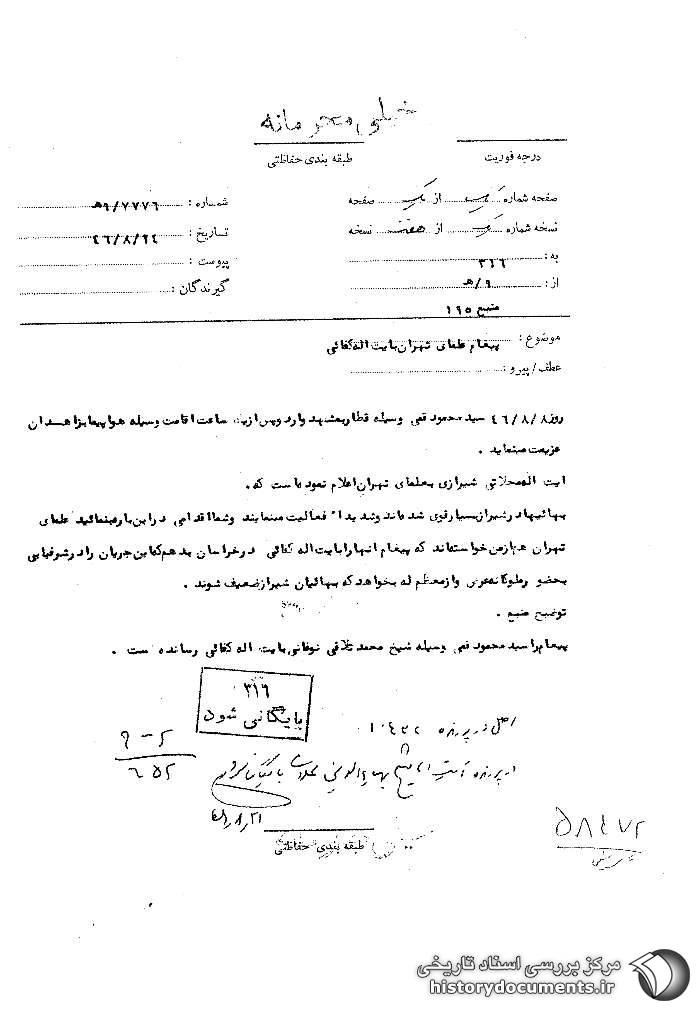 خیلی محرمانه
درجه فوریت
طبقه بندی حفاظتی
صفحه شماره یک از یک صفحه
شماره : ۹/۷۷۷۶/ﻫ
نسخه شماره از هفت نسخه
تاریخ : ۴۶/۸/۲۴
به : ۳۱۶
پیوست :
از : ۹/ﻫ
گیرندگان :
منبع ۱۶۵
موضوع : پیغام علمای تهران بایت اله کفائی
عطف/پیرو :
روز ۴۶/۸/۸ سید محمود قمی وسیله قطار بمشهد وارد و پس از یک ساعت اقامت وسیله هواپیما بزاهدان
عزیمت مینماید .
ایت اله محلاتی شیرازی بعلمای تهران اعلام نموده است که .
بهائیها در شیراز بسیار قوی شده اند و شدیدا" فعالیت مینمایند و شما اقدامی در این باره نمینمائید علمای
تهران هم از من خواسته اند که پیغام انها را بایت اله کفائی در خراسان بدهم که این جریان را در شرفیابی
بحضور ملوکانه عرض و از معظم له بخواهد که بهائیان شیراز ضعیف شوند .
توضیح منبع .
پیغام را سید محمود قمی وسیله شیخ محمد تقی نوقانی بایت اله کفائی رسانده است .
۳۱۶
بایگانی شود
اصل در پرونده ۱۰۴۳۲
۹-۲
۶۵۲
در پرونده آیت اله شیخ بهاءالدین محلاتی بایگانی شود
۴۶/۸/۲۱
۵۸۴۷۲
طبقه بندی حفاظتی
مرکز بررسی اسناد تاریخی
historydocuments.ir